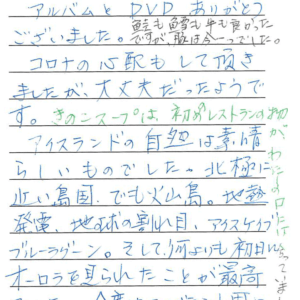 アルバムとDVDありがとう
ございました。鮭も鱈も牛も良かった
ですが、豚は今一つでした。
コロナの心配もして頂き
ましたが、大丈夫だったようで
す。きのこスープは、初めのレストランのお物が
わたしの口には合っていま
アイスランドの自然は素晴
らしいものでした。北極に
近い島国、でも火山島。地熱
発電、地球の割れ目、アイスケイブ
ブルーラグーン。そして何よりも初日に
オーロラを見られたことが最高